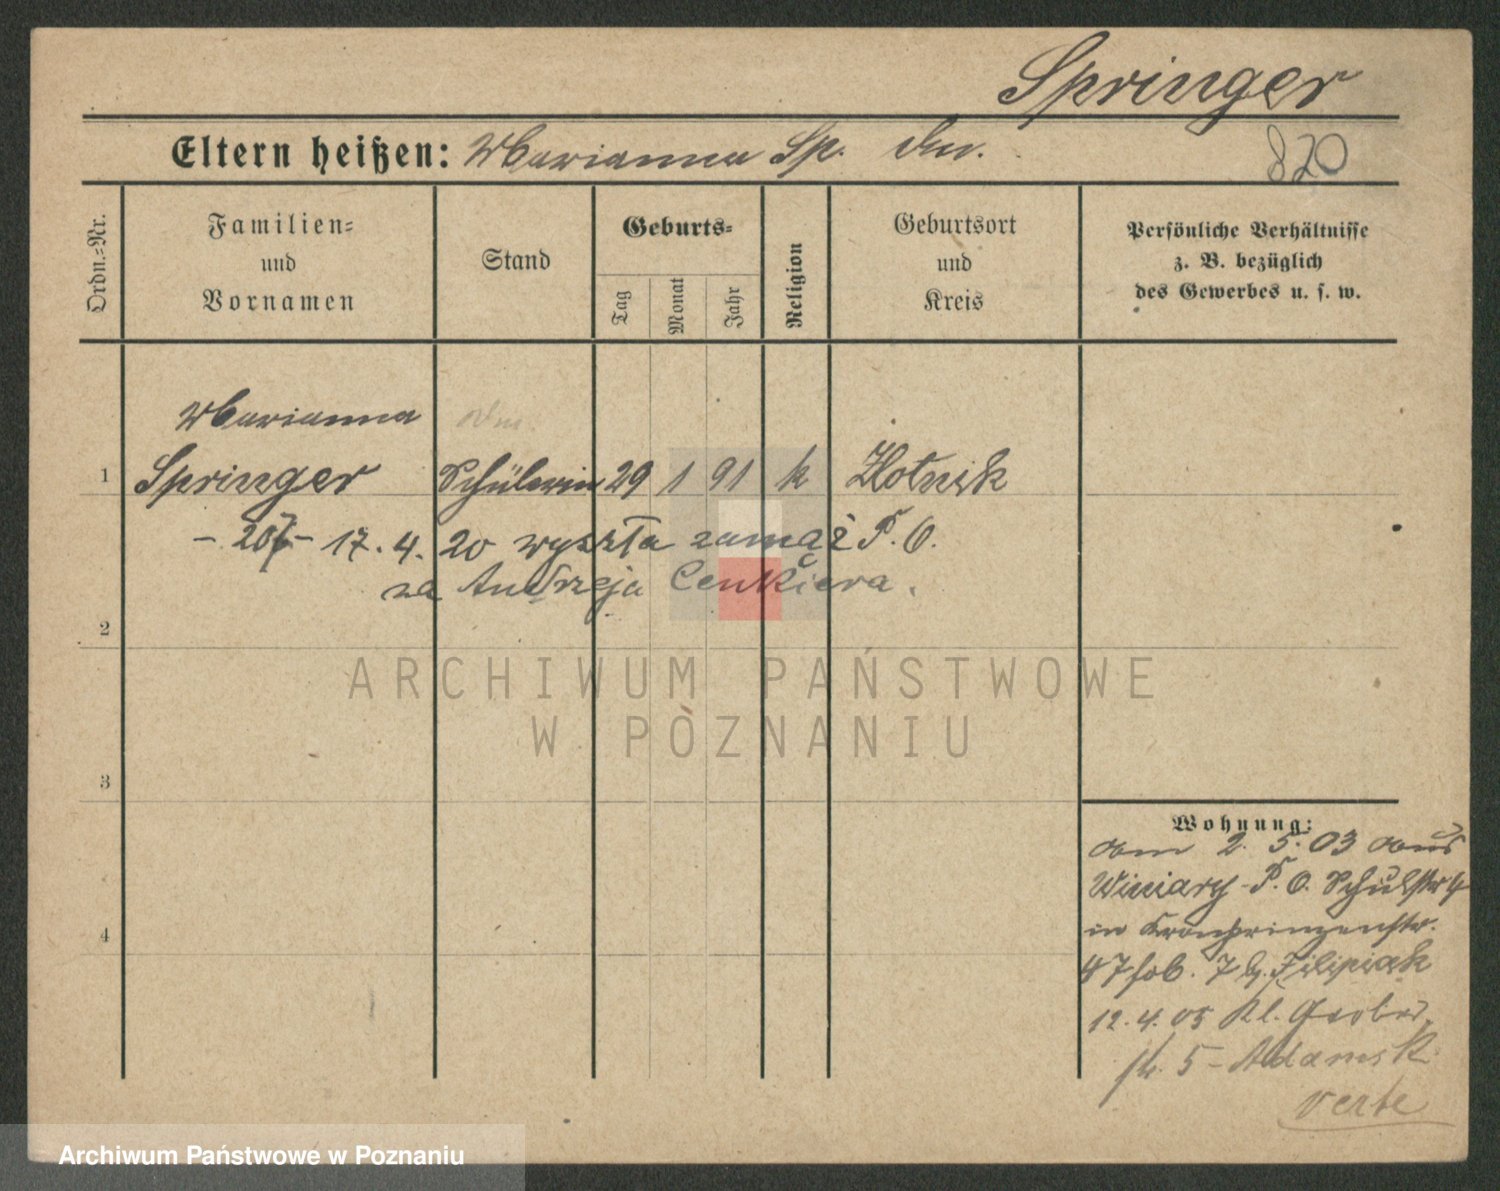 Springer
Eltern heißen: Marianna Sp.
820
Ordn.=Nr.
Familien=
und
Vornamen
Stand
Geburts=
Tag
Monat
Jahr
Religion
Geburtsort
und
Kreis
Persönliche Verhältnisse
z. B. bezüglich
des Gewerbes u. s. w.
Marianna
1 Springer Schülerin 29 1 91 k Złotnik
17. 4. 20 wyszła zamąż P. O.
za Andrzeja Cenkiera.
2
3
4
ARCHIWUM PAŃSTWOWE
W POZNANIU
Wohnung:
am 2. 5. 03 aus
Winiary P. O. Schulstr 4
in Kronprinzenstr.
47 b. Filipiak
12. 4. 05 Kl. Gerber
str. 5 - Adamsk
verte
Archiwum Państwowe w Poznaniu